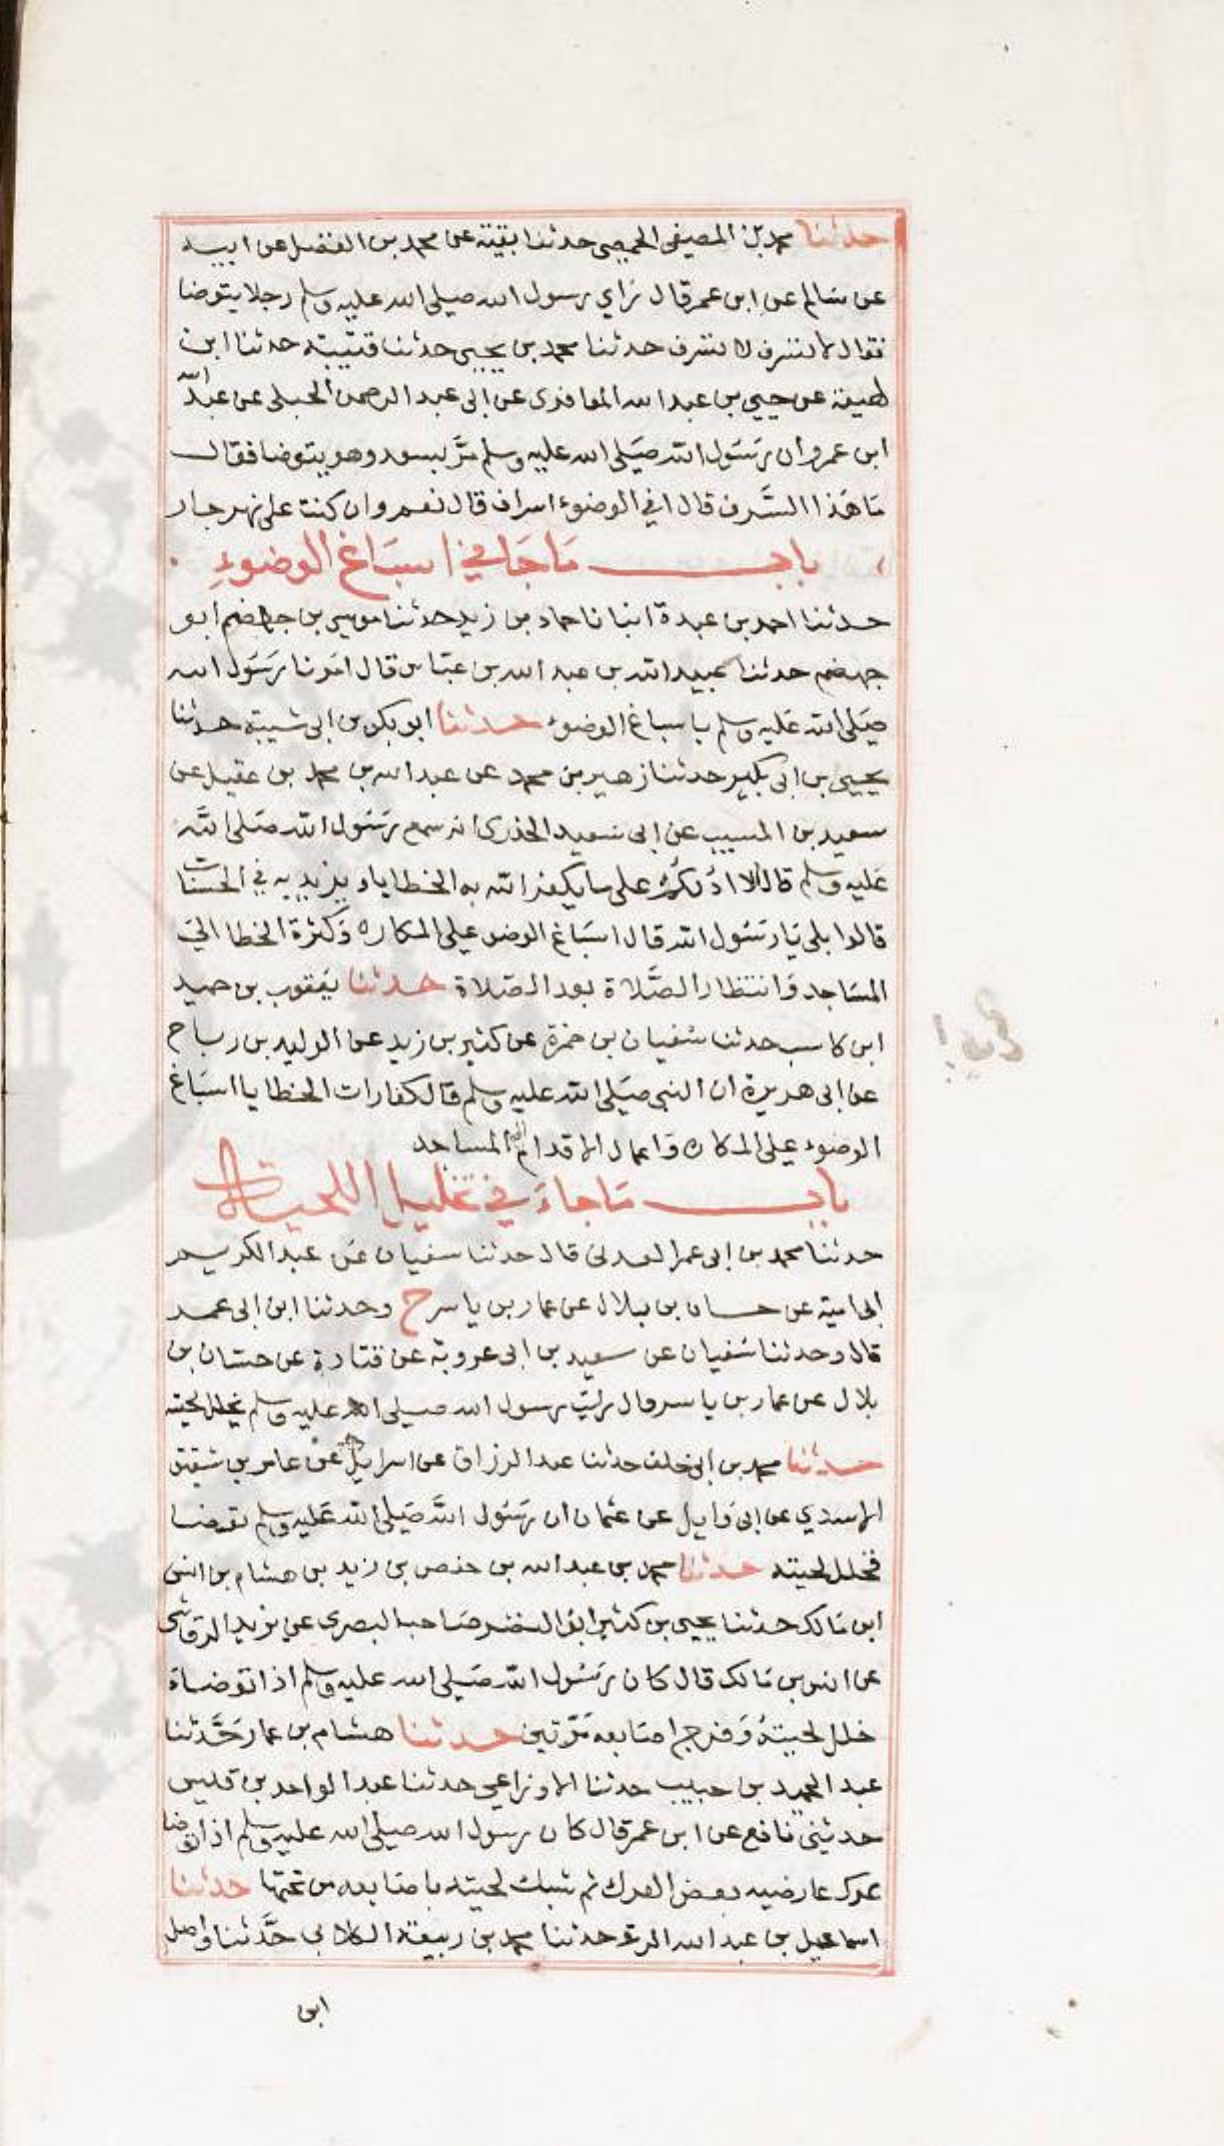 حدثنا محمد بن المصفي الحمصي حدثنا بقية عن محمد بن الفضل عن ابيه
عن سالم عن ابن عمر قال راي رسول الله صلى الله عليه وسلم رجلا يتوضا
فقال لا تسرف لا تسرف حدثنا محمد بن يحيى حدثنا قتيبة حدثنا ابن
لهيعة عن حيي بن عبد الله المعافري عن ابى عبد الرحمن الحبلى عن عبد الله
ابن عمرو ان رسول الله صلى الله عليه وسلم مر بسعد وهو يتوضا فقال
ما هذا السرف قال افي الوضوء اسراف قال نعم وان كنت على نهر جار
باب ما جا في اسباغ الوضوء
حدثنا احمد بن عبدة انبانا حماد بن زيد حدثنا موسى بن جهضم ابو
جهضم حدثنا عبيد الله بن عبد الله بن عباس قال امرنا رسول الله
صلى الله عليه وسلم باسباغ الوضوء حدثنا ابو بكر بن ابى شيبة حدثنا
يحيى بن ابى بكير حدثنا زهير بن محمد عن عبد الله بن محمد بن عقيل عن
سعيد بن المسيب عن ابى سعيد الخذرى انه سمع رسول الله صلى الله
عليه وسلم قال الا ادلكم على ما يكفر الله به الخطايا ويزيد به في الحسنات
قالوا بلى يا رسول الله قال اسباغ الوضو على المكاره وكثرة الخطا الى
المساجد وانتظار الصلاة بعد الصلاة حدثنا يعقوب بن حميد
ابن كاسب حدثنا سفيان بن حمزة عن كثير بن زيد عن الوليد بن رباح
عن ابى هريرة ان النبي صلى الله عليه وسلم قال كفارات الخطايا اسباغ
الوضوء على المكاره واعمال الاقدام الى المساجد
باب ما جاء في تخليل اللحية
حدثنا محمد بن ابى عمر العدنى قال حدثنا سفيان عن عبد الكريم
ابى امية عن حسان بن بلال عن عمار بن ياسر ح وحدثنا ابن ابى عمر
قال وحدثنا سفيان عن سعيد بن ابى عروبة عن قتادة عن حسان بن
بلال عن عمار بن ياسر قال رايت رسول الله صلى الله عليه وسلم يخلل لحيته
حدثنا محمد بن ابى خلف حدثنا عبد الرزاق عن اسرائيل عن عامر بن شقيق
الاسدي عن ابى وايل عن عثمان ان رسول الله صلى الله عليه وسلم توضا
فخلل لحيته حدثنا محمد بن عبد الله بن حفص بن زيد بن هشام بن انس
ابن مالك حدثنا يحيى بن كثير ابو النضر صاحب البصرى عن يزيد الرقاشى
عن انس بن مالك قال كان رسول الله صلى الله عليه وسلم اذا توضاة
خلل لحيته وفرج اصابعه مرتين حدثنا هشام بن عمار حدثنا
عبد الحميد بن حبيب حدثنا الاوزاعي حدثنا عبد الواحد بن قيس
حدثني نافع عن ابن عمر قال كان رسول الله صلى الله عليه وسلم اذا توضا
عرك عارضيه بعض العرك ثم شبك لحيته باصابعه من تحتها حدثنا
اسماعيل بن عبد الله الرقى حدثنا محمد بن ربيعة الكلابى حدثنا واصل
ابن